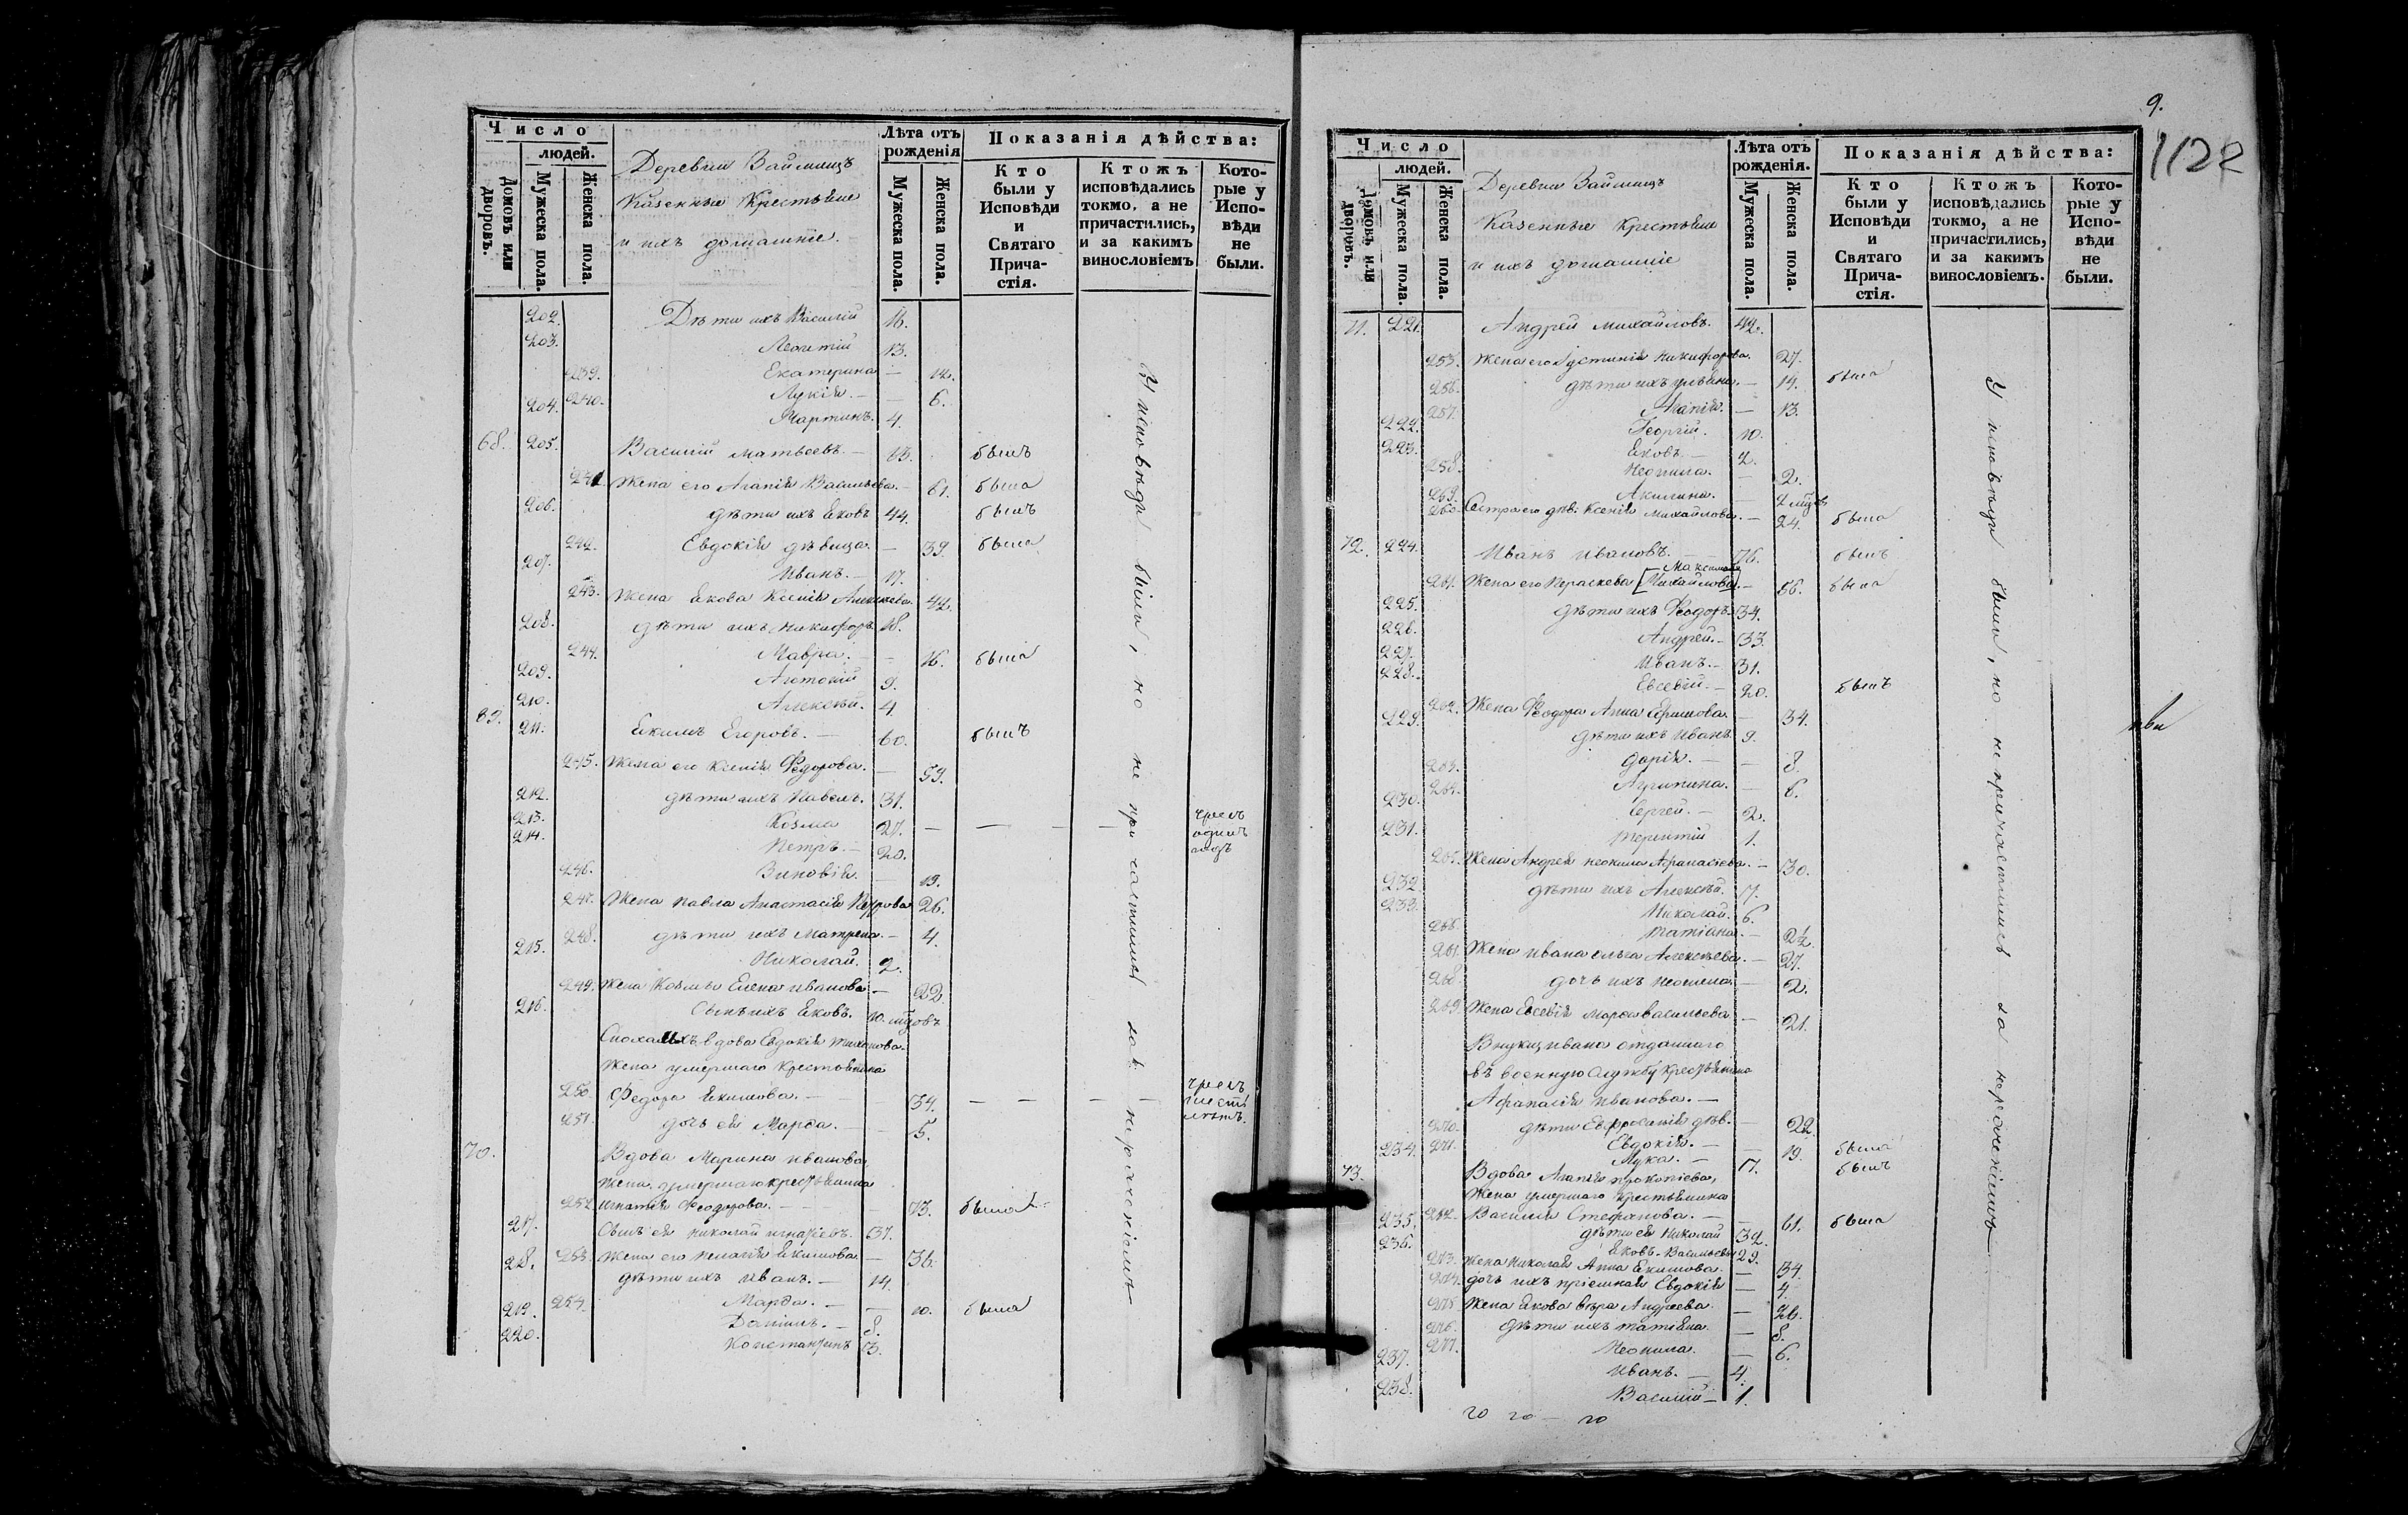 Число
людей.
Домовъ или дворовъ.
Мужеска пола.
Женска пола.
Деревни Займищъ
Казенные Крестьяне
и ихъ домашніе.
Лѣта отъ рожденія
Мужеска пола.
Женска пола.
Показанія дѣйства:
Кто были у Исповѣди и Святаго Прича-стія.
Ктожъ исповѣдались токмо, а не причастились, и за какимъ винословіемъ
Кото-рые у Испо-вѣди не были.
202. Дѣти ихъ Василій 16.
203. Леонтій 13.
239. Екатерина — 12.
240. Лукія. — — 6.
204. Мартинъ. 4.
68. 205. Василій Матвеевъ. — былъ
241. Жена его Агапія Васильева. — 61. была
206. дѣти ихъ Яковъ 44. былъ
242. Евдокія дѣвица. — 39. была
207. Иванъ. — 17.
243. Жена Якова Ксенія 42.
208. дѣти ихъ Никифоръ 18.
244. Мавра. — — 16. была
209. Антоній 9.
210. Алексѣй. 4.
69. 211. Екимъ Егоровъ. — 60. былъ
245. Жена его Ксенія Федорова. — 59.
212. дѣти ихъ Павелъ. 31.
213. Козма 27. — — — — чрезъ одинъ годъ
214. Петръ. — 20.
246. Зиновія. — 19.
247. Жена Павла Анастасія Петрова 26.
248. дѣти ихъ Матрена. — 4.
215. Николай. 2.
249. Жена Козьмы Елена Иванова — 22.
216. Сынъ ихъ Яковъ. 10. мцовъ
Сноха ихъ вдова Евдокія Тихонова.
Жена умершаго Крестьянина
250. Федора Екимова. — 34. — — — — чрезъ шесть лѣтъ.
251. дочь ея Марфа. — 5.
70. Вдова Марина Иванова,
жена умершаго крестьянина
252. Игнатія Феодорова. — 73. была
217. Сынъ ея Николай Игнатіевъ. 37.
253. Жена его Пелагія Екимова. — 36.
218. дѣти ихъ Иванъ. — 14.
254. Марфа. — — 10. была
219. Даніилъ. — 8.
220. Константинъ 3.
У исповѣди были, но не причастились за нераченіемъ
9.
1122
Число
людей.
Домовъ или дворовъ.
Мужеска пола.
Женска пола.
Деревни Займищъ
Казенные Крестьяне
и ихъ домашніе
Лѣта отъ рожденія.
Мужеска пола.
Женска пола.
Показанія дѣйства:
Кто были у Исповѣди и Святаго Прича-стія.
Ктожъ исповѣдались токмо, а не причастились, и за какимъ винословіемъ.
Кото-рые у Испо-вѣди не были.
71. 221. Андрей Михайловъ. 42.
255. Жена его Устинія Никифорова. 27.
256. дѣти ихъ Ульяна. — 14. была
257. Агапія. — 13.
222. Георгій. 10.
223. Яковъ. —
258. Неонила. — 2.
259. Акилина. —
260. Сестра его дѣв. Ксенія Михайлова. — 24. была
72. 224. Иванъ Ивановъ. — 76. былъ
261. Жена его Параскева [Михайлова] 56. была
225. дѣти ихъ Феодоръ 34.
226. Андрей. — 33.
227. Иванъ. — 31.
228. Евсевій. — 20. былъ
262. Жена Феодора Анна Ефимова. — 34.
229. дѣти ихъ Иванъ 9.
263. Дарія. — — 8.
264. Агрипина. — 6.
230. Сергей. — 2.
231. Терентій 1.
265. Жена Андрея Неонила Афанасіева. — 30.
232. дѣти ихъ Алексѣй. 7.
233. Николай. 6.
266. Татіана. — 2½.
267. Жена Ивана Ольга Алексѣева. — 27.
268. дочь ихъ Неонила — 2.
269. Жена Евсевія Марфа Васильева — 21.
Внуки Ивана отданнаго
въ военную службу Крестьянина
Афанасія Иванова. —
270. дѣти Евфросинія дѣв. — 22
271. Евдокія. — — 19. была
234. Лука. — 17. былъ
73. Вдова Агапія Прокопіева,
Жена умершаго Крестьянина
272. Василія Стефанова. — — 61. была
235. дѣти ея Николай 32.
236. Яковъ Васильевы 29.
273. Жена Николая Анна Екимова. — 34.
274. дочь ихъ пріемная Евдокія — 4.
275. Жена Якова Вѣра Андреева. — 26.
276. дѣти ихъ Татіана. — 8.
277. Неонила. — 6.
237. Иванъ. — 4.
238. Василій — 1.
У исповѣди были, но не причастились за нераченіемъ